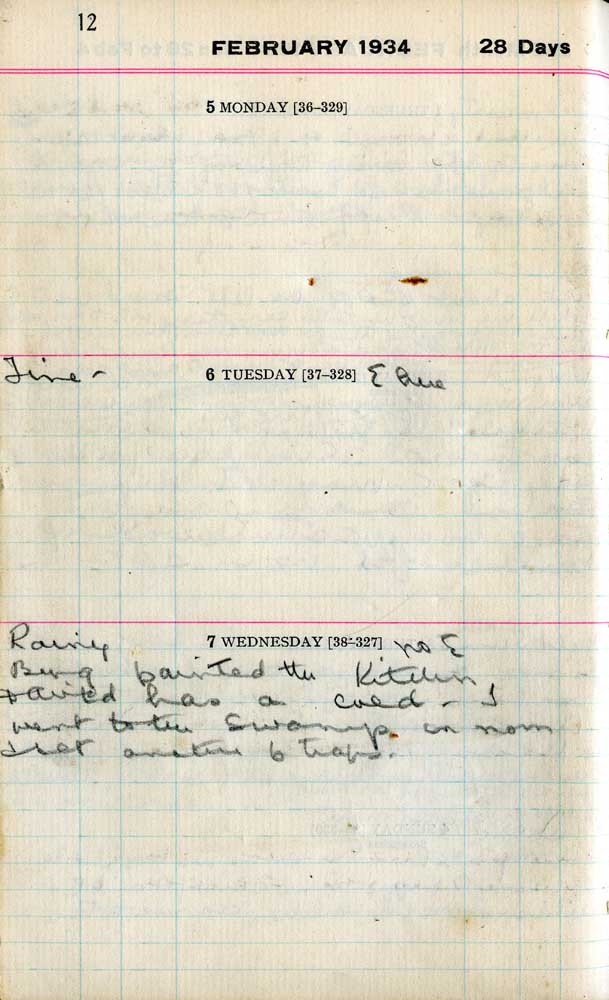 12
FEBRUARY 1934 28 Days
5 MONDAY [36–329]
Fine - 6 TUESDAY [37–328] E here
Rainy 7 WEDNESDAY [38–327] no E
painted the Kitchen
David has a cold - I
went to the Swamp in morn
& set another 6 traps.